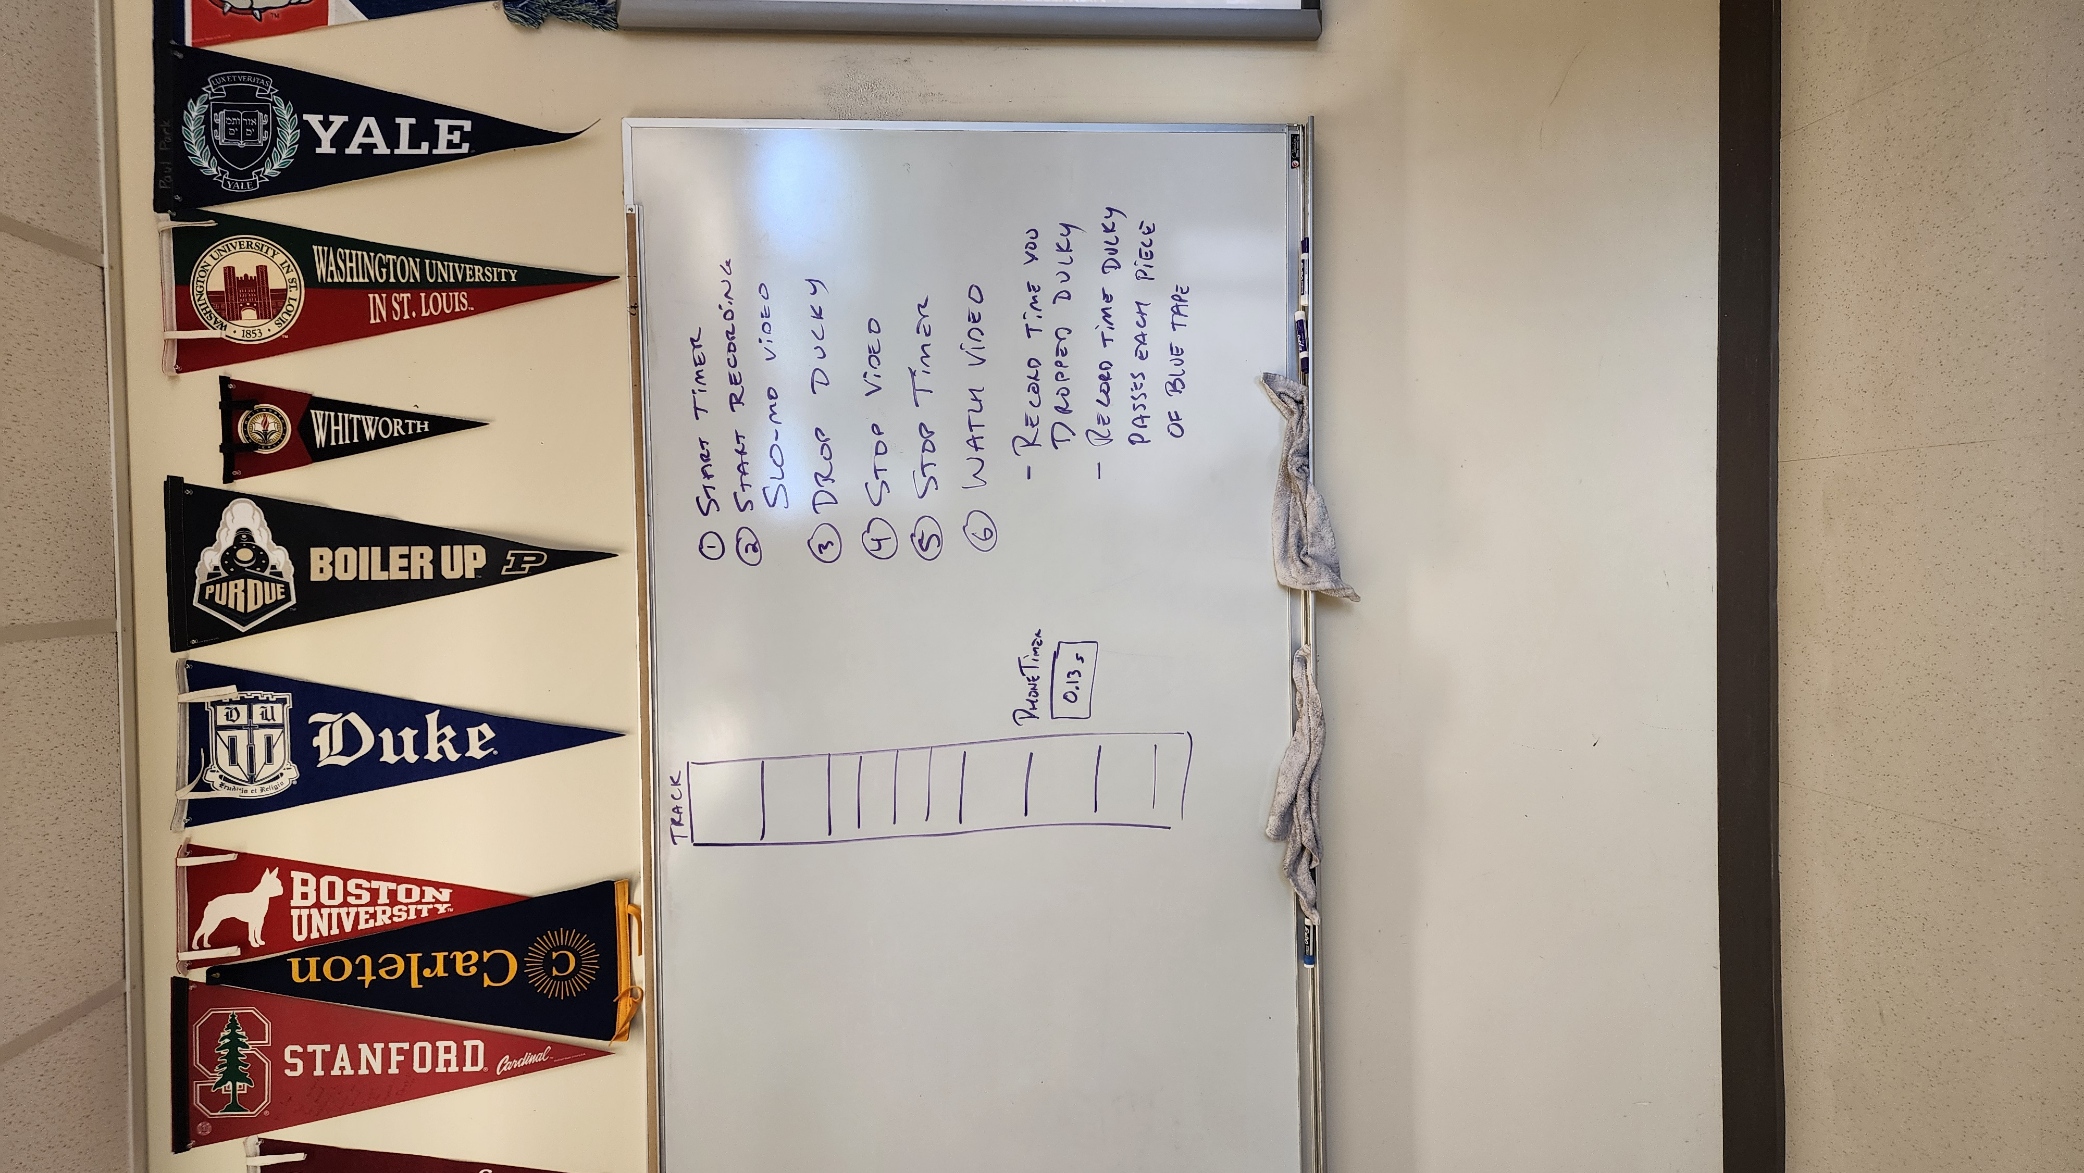 LUX ET VERITAS
YALE
YALE
Paul Park
WASHINGTON UNIVERSITY IN ST. LOUIS
1853
WASHINGTON UNIVERSITY
IN ST. LOUIS
WHITWORTH
PURDUE
BOILER UP P
D U
Duke
BOSTON
UNIVERSITY
C Carleton
S
STANFORD Cardinal
① START TIMER
② START RECORDING
SLO-MO VIDEO
③ DROP DUCKY
④ STOP VIDEO
⑤ STOP TIMER
⑥ WATCH VIDEO
- RECORD TIME YOU
DROPPED DUCKY
- RECORD TIME DUCKY
PASSES EACH PIECE
OF BLUE TAPE
TRACK
PHONE TIMER
0.13 s